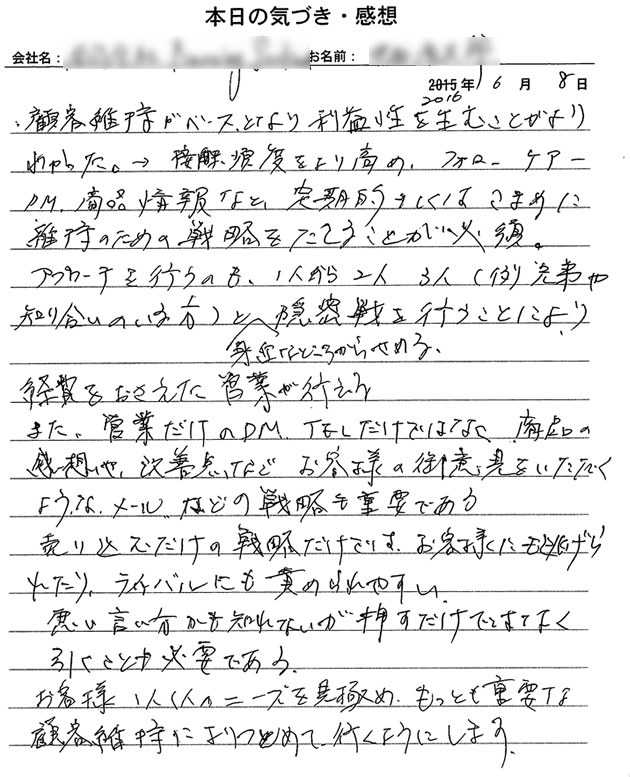 本日の気づき・感想
会社名: お名前:
2015年 6月 8日
2016
・顧客維持がベースとなり利益性を生むことがより
わかった。→ 接触頻度をより高め、フォローケアー
DM、商品情報など、定期的もしくはこまめに
維持のための戦略をたてることが必須。
アプローチを行うのも、1人から2人 3人(例)兄弟や
知り合いのいる方)と隠密戦を行うことにより
身近なところからせめる、
経費をおさえた営業が行える
また、営業だけのDM、TELだけではなく 商品の
感想や、改善点など お客様の御意見をいただく
ような、メールなどの戦略も重要である
売り込みだけの戦略だけでは、お客様にも逃げら
れたり、ライバルにも責められやすい
悪い言い方かも知れないが押すだけではなく
引くことが必要である。
お客様1人1人のニーズを見極め、もっとも重要な
顧客維持によりつとめて行くようにします。